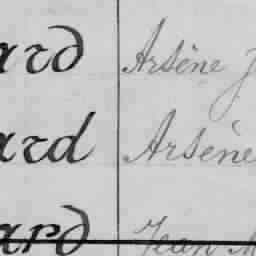 ard Arsène J
ard Arsène
ard Jean M